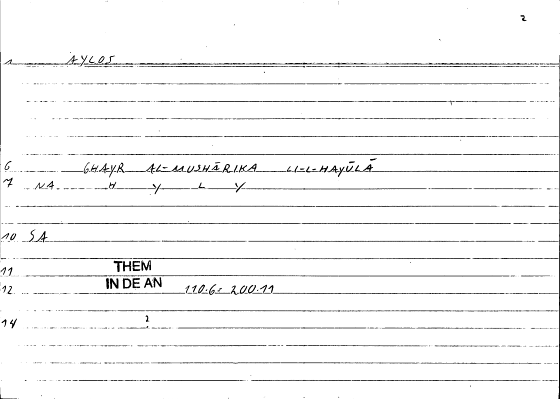 2
1 AYLOS
6 GHAYR AL-MUSHĀRIKA LI-L-HAYŪLĀ
7 NA H Y L Y
10 SA
11 THEM
12 IN DE AN 110.6 = 200.11
14 2